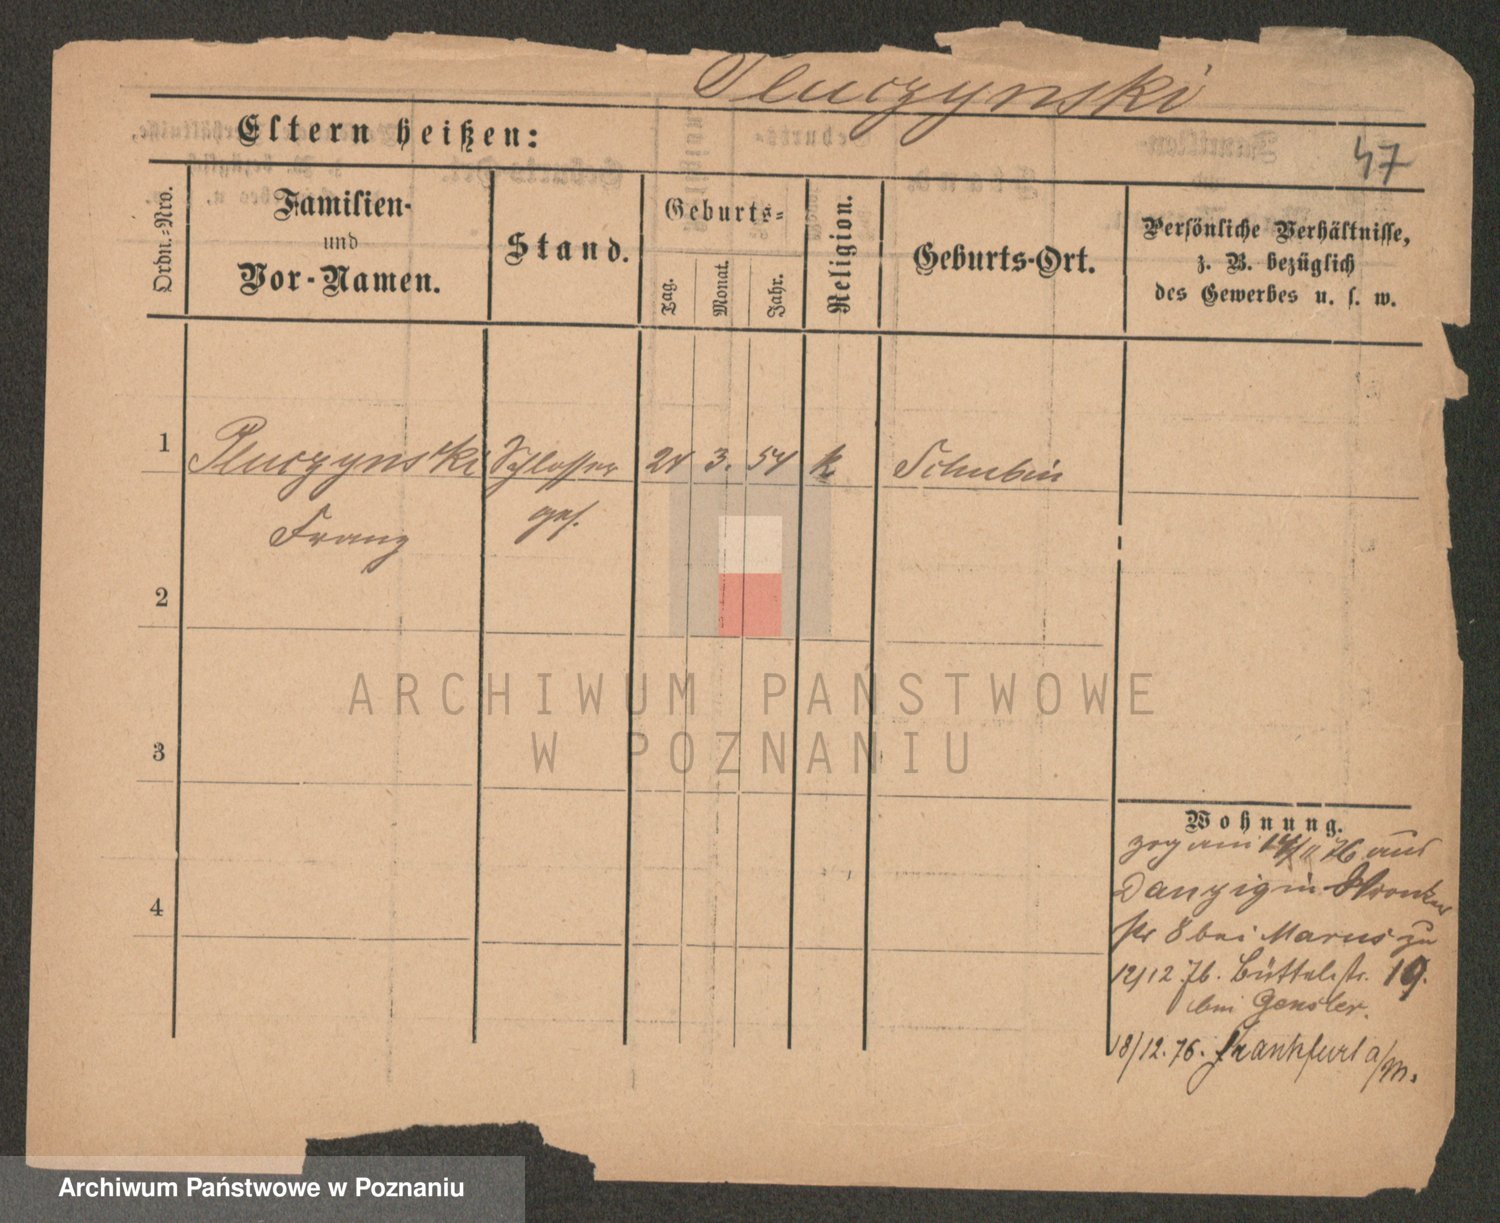 Pluczynski
Eltern heißen:
47
Ordn.-Nro.
Familien-
und
Vor-Namen.
Stand.
Geburts-
Tag.
Monat.
Jahr.
Religion.
Geburts-Ort.
Persönliche Verhältnisse,
z. B. bezüglich
des Gewerbes u. s. w.
1 Pluczynski Schlosser 24 3. 54 k Schubin
Franz ges.
2
3
4
ARCHIWUM PAŃSTWOWE
W POZNANIU
Wohnung.
zog am 14/11 76 aus
Danzig in Wronker
str 8 bei Marus zu
12/12 76. Büttelstr. 19.
bei Gensler.
18/12. 76. Frankfurt a/M.
Archiwum Państwowe w Poznaniu